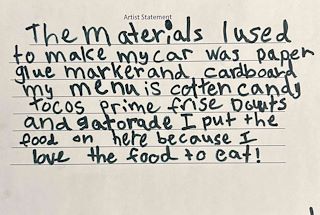 Artist Statement
The materials I used
to make my car was paper
glue marker and cardboard
my menu is cotten candy
tocos prime frise Douts
and gatorade I put the
food on here because I
love the food to eat!